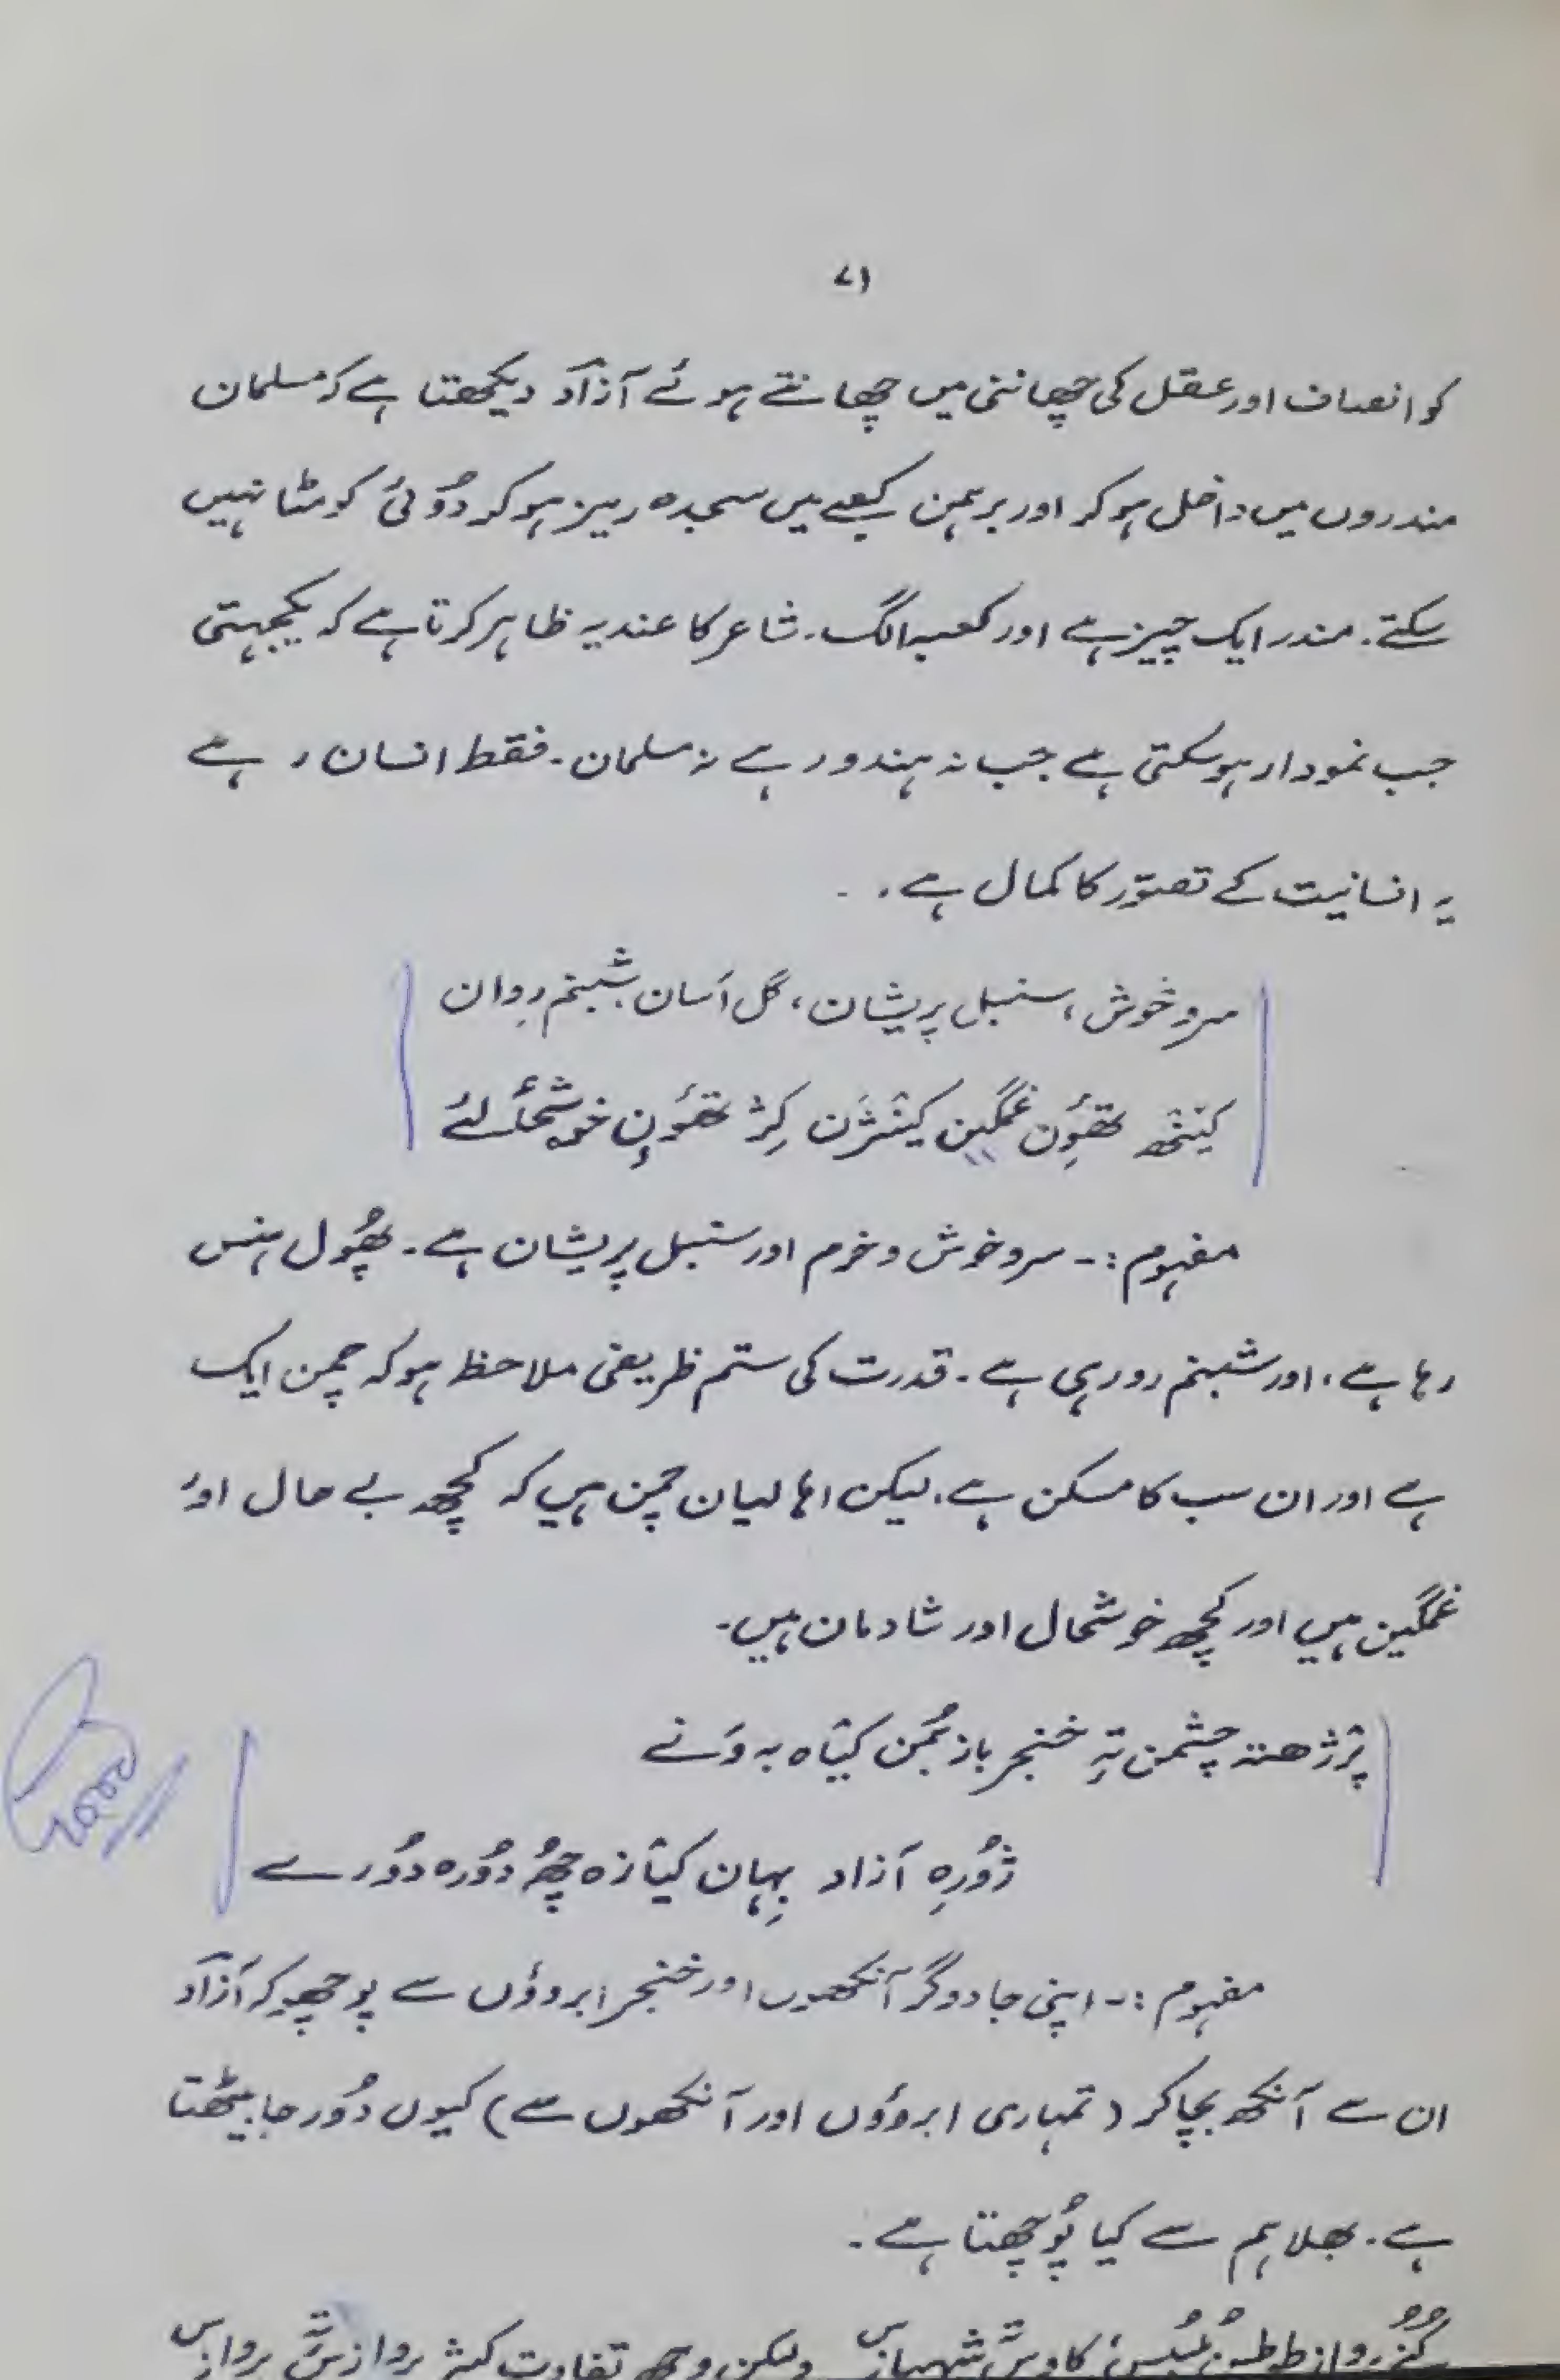 ۷۱
کو انصاف اور عقل کی چھاننی میں چھانتے ہوئے آزاد دیکھتا ہے کہ مسلمان
مندروں میں داخل ہوکر اور برہمن کعبے میں سجدہ ریز ہوکر دُوئی کو مٹا نہیں
سکتے۔ مندر ایک چیز ہے اور کعبہ الگ۔ شاعر کا عندیہ ظاہر کرتا ہے کہ یکجہتی
جب نمودار ہوسکتی ہے جب نہ ہندو رہے نہ مسلمان۔ فقط انسان رہے
یہ انسانیت کے تصوّر کا کمال ہے۔
سرو خوش، سنبل پریشان، گل اَسان، شبنم رِوان
کینٛہہ تھوِن غمگین کینٛژن کِژ تھوِن خوشحٲلئے
مفہوم :- سرو خوش و خرم اور سنبل پریشان ہے۔ پھُول ہنس
رہا ہے، اور شبنم رو رہی ہے۔ قدرت کی ستم ظریفی ملاحظ ہوکہ چمن ایک
ہے اور ان سب کا مسکن ہے۔ لیکن اہالیان چمن ہیں کہ کچھ بے حال اور
غمگین ہیں اور کچھ خوشحال اور شادمان ہیں۔
پرٛژھتہ چشمن تہٕ خنجر باز بُمن کیٛاہ بہ وَنے
ژوٗرِہ آزاد بِہان کیٛازہ چھُ دوٗرہ دوٗرے
مفہوم :- اپنی جادوگر آنکھوں اور خنجر ابروؤں سے پوچھیے کہ آزاد
ان سے آنکھ بچا کر (تمہاری ابروؤں اور آنکھوں سے) کیوں دُور جا بیٹھتا
ہے۔ بھلا ہم سے کیا پُوچھتا ہے۔